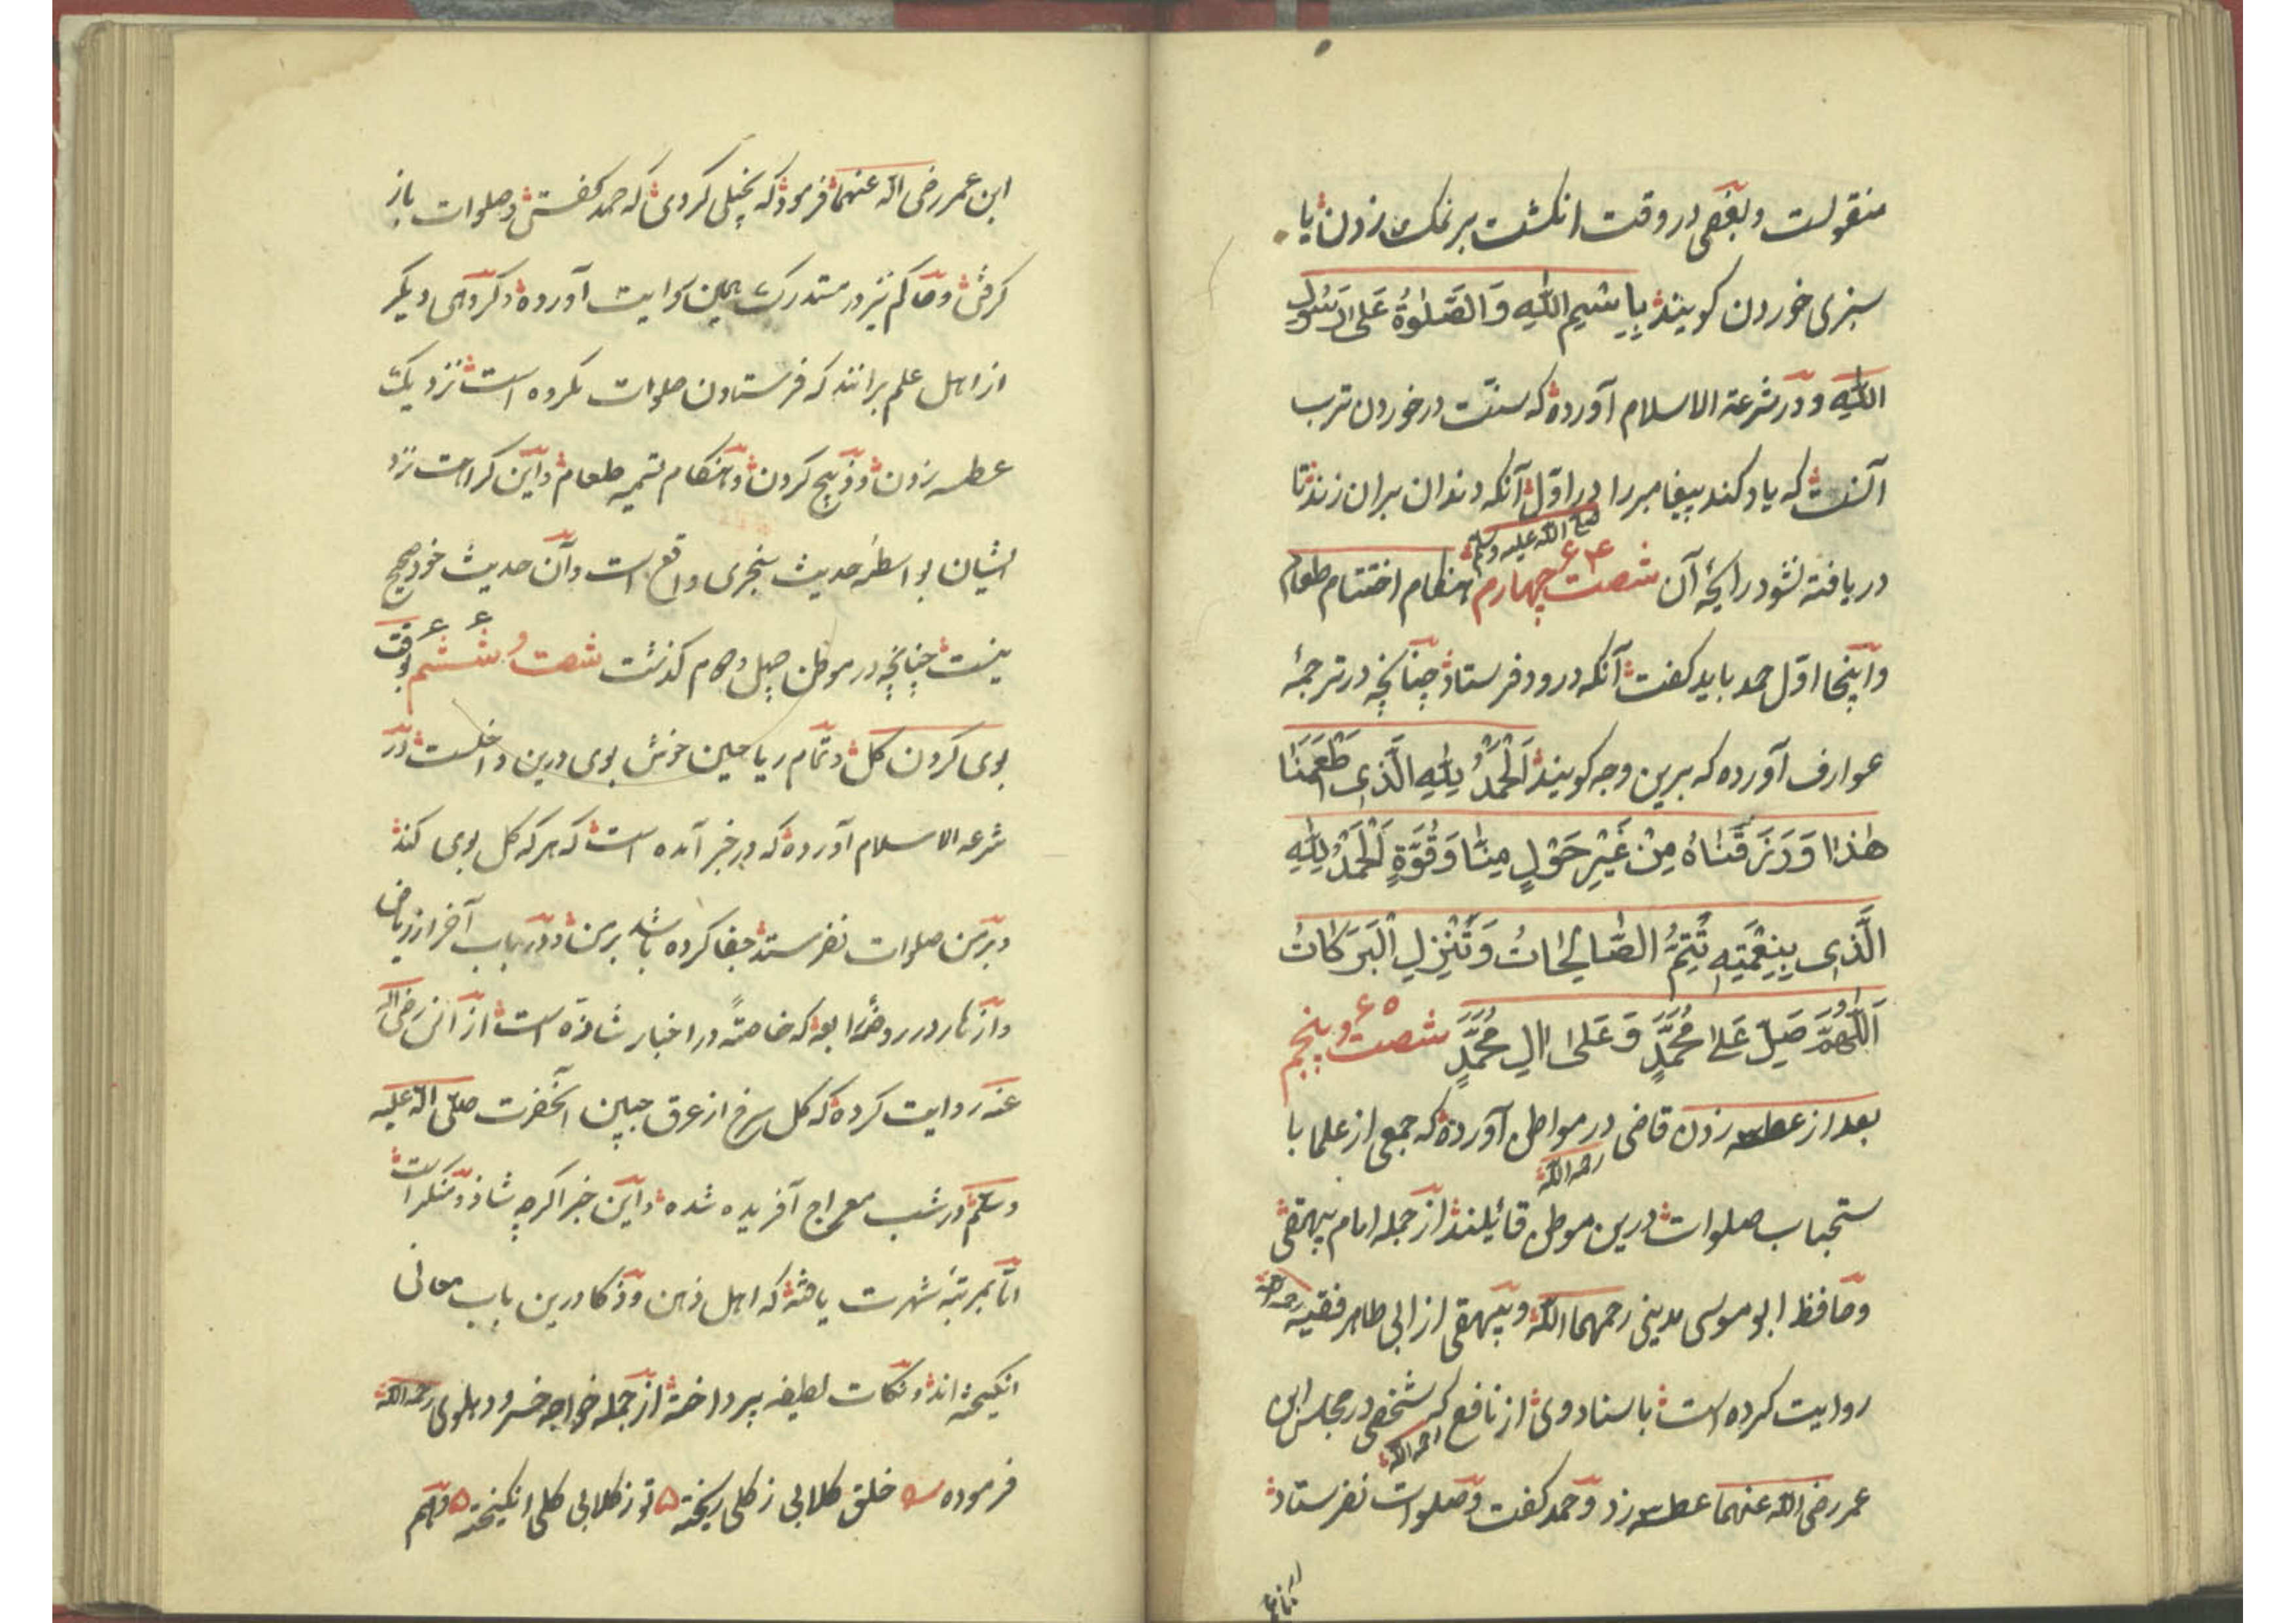 منقولست و بعضی در وقت انکشت بر نمک زدن یا
سبزی خوردن کویند بِاسْمِ اللّٰهِ وَالصَّلوٰةُ عَلیٰ رَسُولِ
اللّٰهِ و در شرعة الاسلام آورده که سنّت در خوردن ترب
آنست که یاد کند پیغامبر را در اوّل آنکه دندان بران زند تا
صلی الله علیه وسلم
دریافته نشود رایحۀ آن شصت چهارم ۶۴ هنکام اختتام طعام
و اینجا اوّل حمد باید کفت آنکه درود فرستاد چنانچه در ترجمۀ
عوارف آورده که برین وجه کویند اَلْحَمْدُ لِلّٰهِ الَّذِی اَطْعَمَنَا
هٰذَا وَرَزَقَنَاهُ مِنْ غَیْرِ حَوْلٍ مِنَّا وَقُوَّةٍ اَلْحَمْدُ لِلّٰهِ
الَّذِی بِنِعْمَتِهِ تُتِمُّ الصَّالِحَاتُ وَتُنْزِلُ الْبَرَکَاتُ
اَللّٰهُمَّ صَلِّ عَلیٰ مُحَمَّدٍ وَعَلیٰ اٰلِ مُحَمَّدٍ شصت و پنجم ۶۵
بعد از عطسه زدن قاضی در مواطن آورده که جمعی از علما با
رحمه الله
ستحباب صلوات درین موطن قائیلند از جمله امام بیهقی
و حافظ ابو موسی مدینی رحمهما الله و بیهقی از ابی طاهر فقیه رحمه الله
روایت کرده است باسناد وی از نافع که شخصی در مجلس ابن
رحمه الله
عمر رضی الله عنهما عطسه زد و حمد کفت و صلوات نفرستاد
ابن عمر رضی الله عنهما فرمود که بخیلی کردی که حمد کفتی و صلوات باز
کرفتی و حاکم نیز در مستدرک همین روایت آورده و کروهی دیکر
از اهل علم برانند که فرستادن صلوات مکروه است نزدیک
عطسه زدن و ذبح کردن و هنکام تسمیه طعام و این کراهت نزد
ایشان بواسطۀ حدیث سنجری واقع است و آن حدیث خود صحیح
نیست چنانچه در موطن چهل و چهارم کذشت شصت و ششم ۶۶ بوقت
بوی کردن کل و تمام ریاحین خوش بوی درین داخلست و در
شرعه الاسلام آورده که در خبر آمده است که هر که کل بوی کند
و بر من صلوات نفرستد جفا کرده باشد بر من و در باب آخر از ریاض
و ازهار در روضۀ رابعه که خاصةً در اخبار شاذه است از انس رضی الله
عنه روایت کرده که کل سرخ از عرق جبین آنحضرت صلّی الله علیه
وسلّم در شب معراج آفریده شده و این خبر اکرچه شاذ و منکر است
امّا بمرتبۀ شهرت یافته که اهل ذهن و ذکا درین باب معانی
انکیخته اند و نکات لطیفه پرداخته از جمله خواجه خسرو دهلوی رحمه الله
فرموده خلق کلابی ز کلی ریخته تو ز کلابی کلی انکیخته و هم